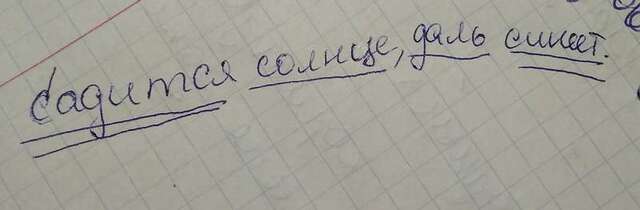 Садится солнце, даль синеет.